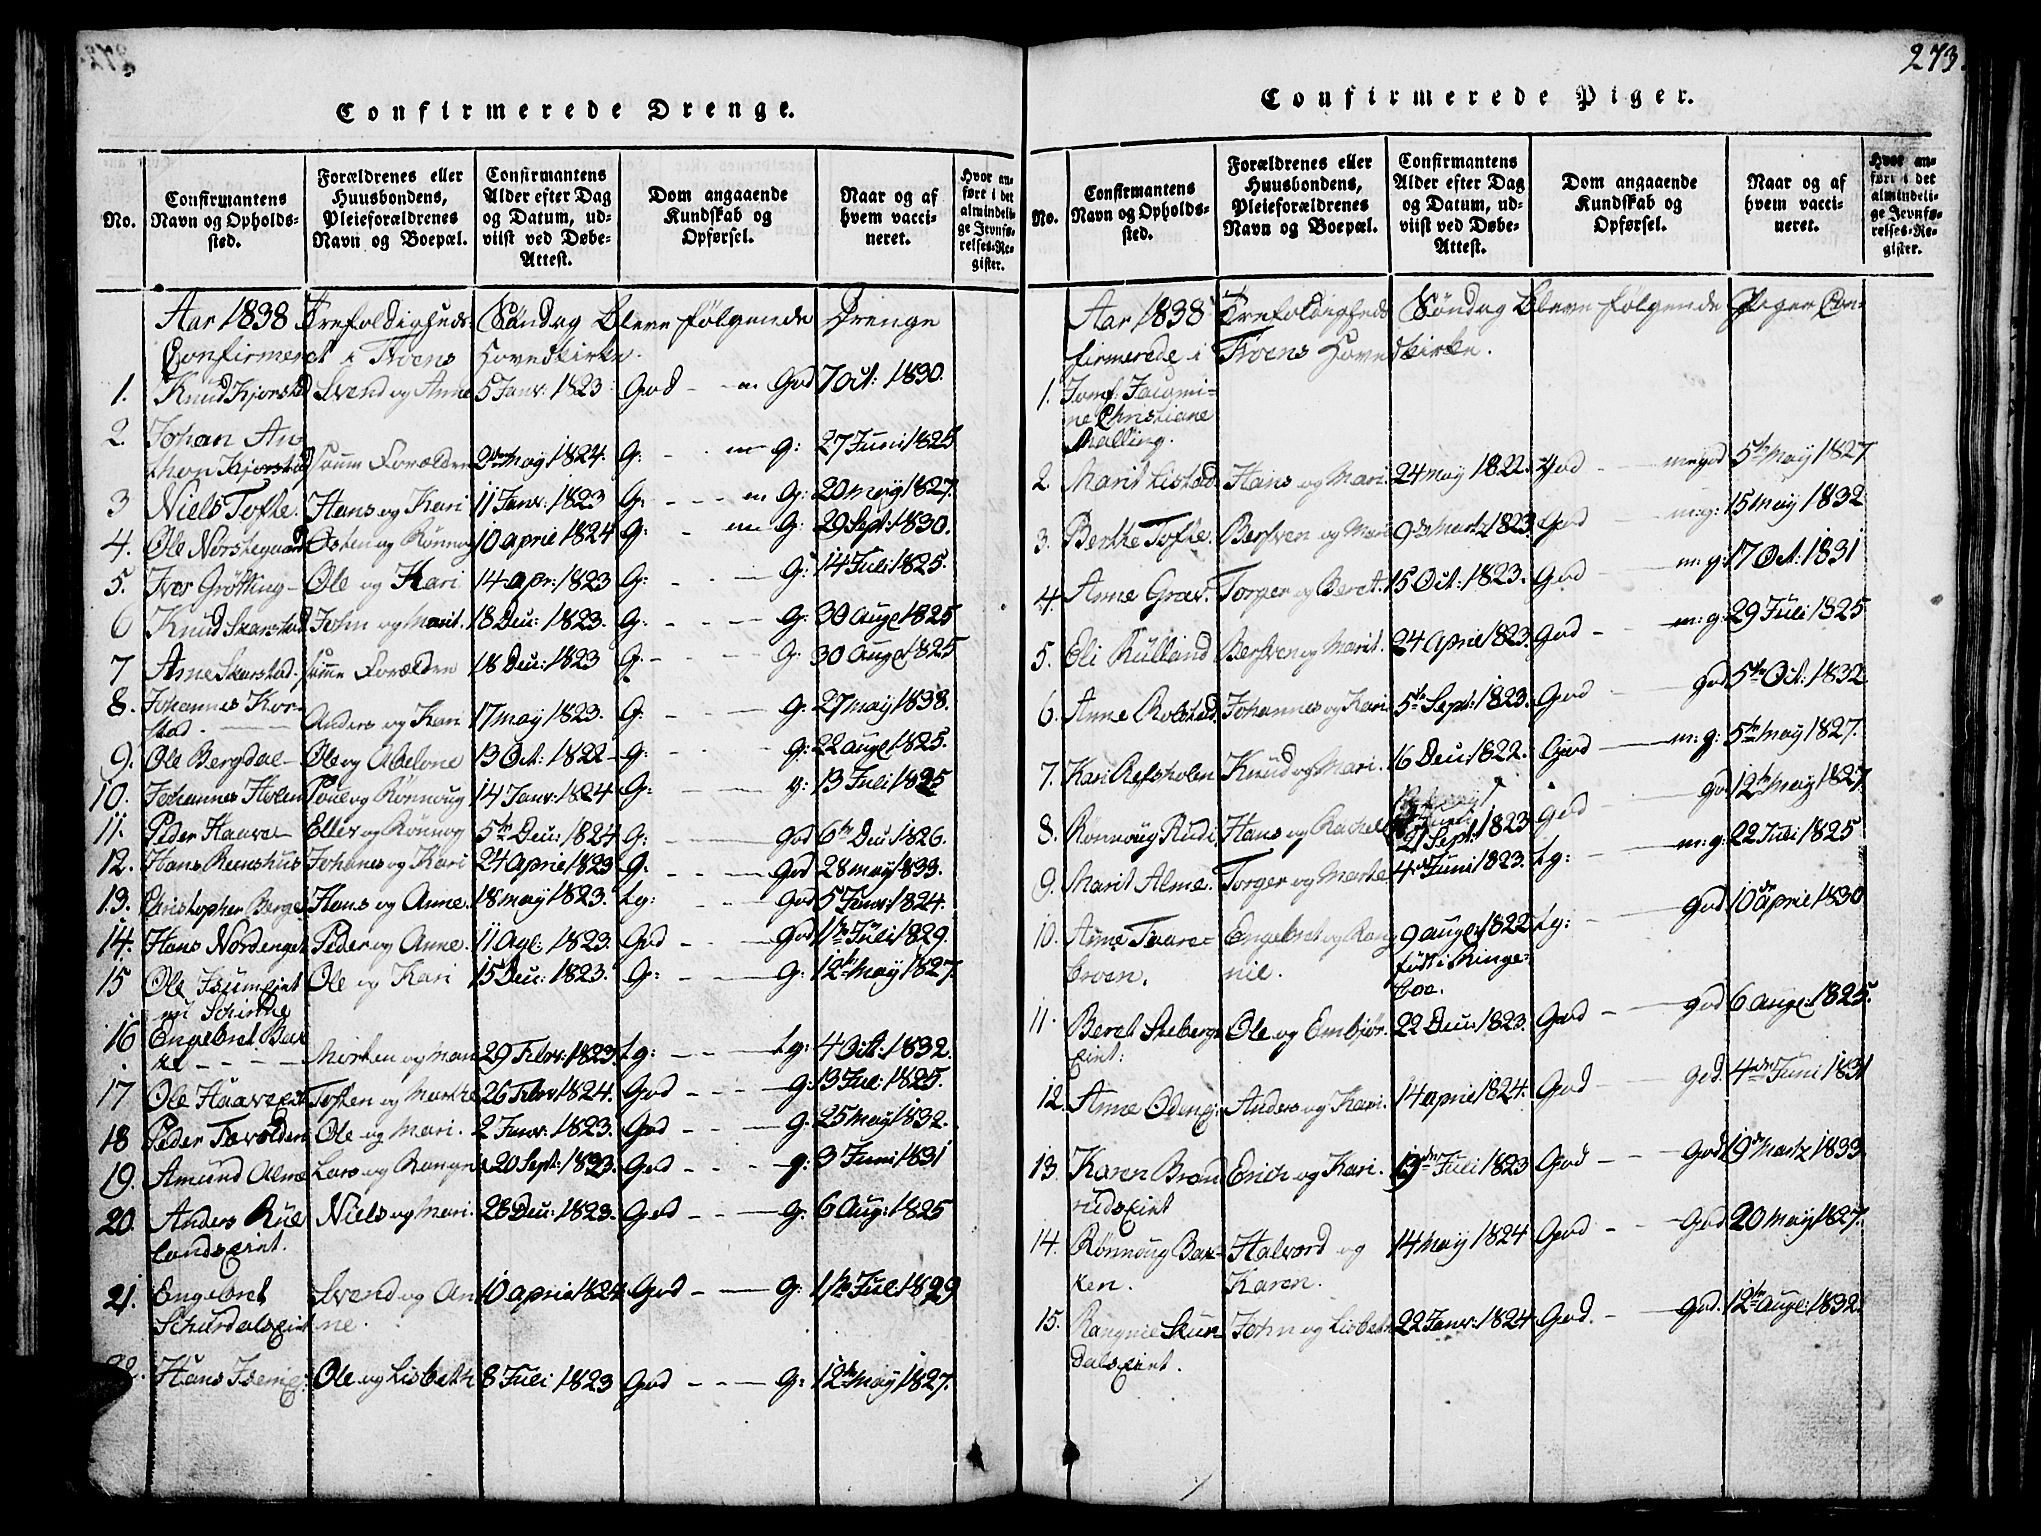 273.
Confirmerede Drenge.
No.
Confirmantens Navn og Opholdssted.
Forældrenes eller Huusbondens, Pleieforældrenes Navn og Boepæl.
Confirmantens Alder efter Dag og Datum, udviist ved Døbe-Attest.
Dom angaaende Kundskab og Opførsel.
Naar og af hvem vaccineret.
Hvor anført i det almindelige Jevnførelses-Register.
Aar 1838 Trefoldigheds Søndag bleve følgende Drenge
Confirmeret i Froens Hovedkirke.
1. Knud Kjorstad Svend og Anne 5 Janv: 1823 God - - m God 7 Oct: 1830.
2. Johan An-
thon Kjorstad samme Forældre 2den May 1824. G: - - m G: 27 Juni 1825
3 Niels Tofte. Hans og Kari 11 Janv: 1823 G: - - - m G: 20 May 1827.
4. Ole Norstegaard Østen og Rønnog 10 April 1824 G: - - m G: 29 Sept: 1830.
5. Iver Grötting Ole og Kari 14 Apr: 1823 G: - - - G: 14 Juli 1825.
6 Knud Skarstad John og Marit. 18 Dec: 1823. G: - - - G: 30 Augl 1825
7 Arne Skarstad. samme Forældre 18 Dec: 1823 G: - - - G: 30 Augl 1825
8. Johannes Kor-
stad. Anders og Kari 17 May 1823. G: - - - G: 27 May 1838.
9. Ole Bergdal Ole og Abelone 13 Oct: 1822 G: - - - g: 22 Augl 1825.
10. Johannes Holm Poul og Rønnoug 14 Janv: 1824 G: - - - g: 13 Juli 1825
11. Peder Haave Eller og Rønnog 5te Dec: 1824 G: - - - God 6te Dec 1826.
12. Hans Reenshus Johanes og Kari 24 April 1823 G: - - - God 28 May 1833.
13. Christopher Berge Hans og Anne. 18 May 1823. Lg: - - - God 5 Janv: 1824.
14. Hans Nordenget Peder og Anne. 11 Agl: 1823. God - - - God 1te Juli 1829.
15 Ole Isumeint Ole og Kari 15 Dec: 1823. G: - - - G: 12te May 1827.
16 Engebret Bak-
ke Morten og Mari 29 Febr: 1823 Lg: - - - Lg: 4 Oct: 1832.
17 Ole Haaveeint Tosten og Marthe 26 Febr 1824. God - - - g: 13 Jul: 1825.
18 Peder Ole og Mari. 2 Janv: 1823. God - - - G: 25 May 1832.
19. Amund Alme Lars og Rangn: 20 Sept: 1823. God - - - g: 3 Juni 1831
20. Anders Rul-
landseint. Niels og Mari. 28 Dec: 1823. God - - - G: 6 Aug: 1825
21. Engebret Svend og An- 10 April 1824 God - - - G: 1te Jul 1829
Schurdalseint ne.
22. Hans Ole og Lisbeth 8 Juli 1823 God - - - G: 12te May 1827.
Confirmerede Piger.
No.
Confirmantens Navn og Opholdssted.
Forældrenes eller Huusbondens, Pleieforældrenes Navn og Boepæl.
Confirmantens Alder efter Dag og Datum, udviist ved Døbe-Attest.
Dom angaaende Kundskab og Opførsel.
Naar og af hvem vaccineret.
Hvor anført i det almindelige Jevnførelses-Register.
Aar 1838 Trefoldigheds Søndag bleve følgende Piger Con-
firmerede i Froens Hovedkirke.
1. Jomf: Jacomi-
ne Christiane
Malling.
2. Marit Listad Hans og Mari. 24 May 1822. God - - m: god 5te May 1827
3. Berthe Tofte. Bersven og Mari 9de Martz 1823. God - - m: g: 15 May 1832
4. Anne Grav. Torger og Beret. 15 Oct: 1823. God - - m: g: 17 Oct: 1831
5. Eli Rulland Bersven og Marit. 24 April 1823. God - - m: g: 29 Juli 1825
6. Anne Kolstad. Johannes og Kari 5te Sept: 1823. God - - god 5te Oct: 1832
7. Kari Refsholen Knud og Mari. 16 Dec: 1822. God - - m: g: 5te May 1827.
8. Rønnoug Rudi Hans og Rachel 21 Sept: 1823 God - - God 12te May 1827
9. Marit Alme. Torger og Marthe 4de Juni 1823. Lg: - - m: g: 22 Juli 1825
10. Anne Taare- Engebret og Rang- 9 Augl: 1822 Lg: - - God 10de April 1830
broen. nil. født i Ringe-
boe.
11. Beret Skeberg- Ole og Embjør. 22 Dec: 1823. God - - God 6 Augl: 1825.
eint:
12. Anne Odenej. Anders og Kari. 14 April 1824. God - - God. 4de Juni 1831
13. Karen Bran- Erich og Kari. 13de Juli 1823 God - - God 19de Martz 1833
rudseint
14. Rønnoug Bak- Halvord og 14 May 1824 God - - God 20 May 1827.
ken. Karen.
15. Rangnil Skur- John og Lisbeth 22 Janv: 1824 God. - - God. 12te Augl: 1832.
dalseint.